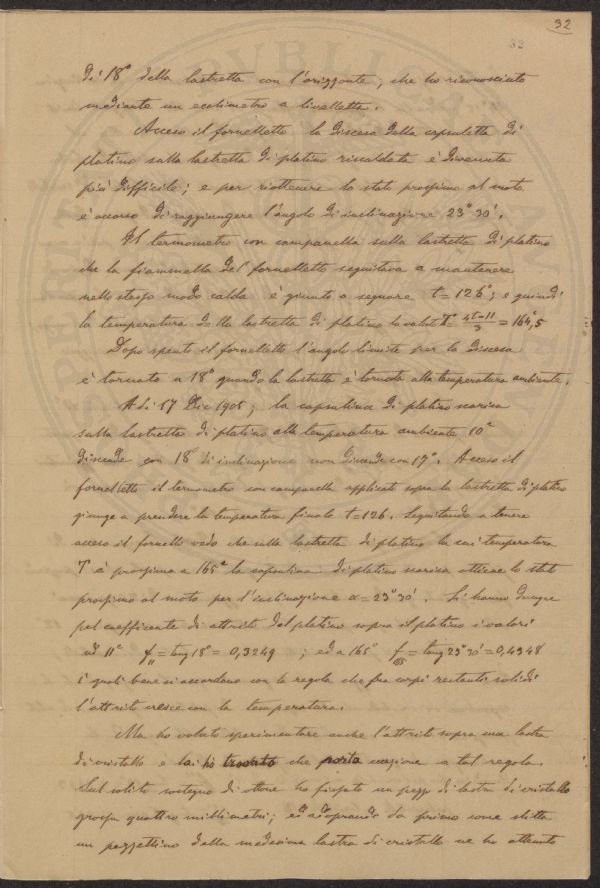 32
32
di 18° della lastretta con l'orizzonte, che ho riconosciuto
mediante un eclimetro a livelletta.
Acceso il fornelletto la discesa della capsuletta di
platino sulla lastretta di platino riscaldata è divenuta
più difficile; e per riottenere lo stato prossimo al moto
è occorso di raggiungere l'angolo di inclinazione 23° 30'.
Il termometro con campanella sulla lastretta di platino
che la fiammella del fornelletto seguitava a mantenere
nello stesso modo calda è giunto a segnare t = 126°; e quindi
la temperatura della lastretta di platino la valuto T = 4t-11/3 = 164°,5
Dopo spento il fornelletto l'angolo limite per la discesa
è tornato a 18° quando la lastretta è tornata alla temperatura ambiente.
A dì 17 Dic 1908; la capsulina di platino scarica
sulla lastretta di platino alla temperatura ambiente 10°
discende con 18° di inclinazione non discende con 17°. Acceso il
fornelletto il termometro con campanella applicato sopra la lastretta di platino
giunge a prendere la temperatura finale t = 126. Seguitando a tenere
acceso il fornello vedo che sulla lastretta di platino la cui temperatura
T è prossima a 165° la capsulina di platino scarica ottiene lo stato
prossimo al moto per l'inclinazione α = 23° 30'. Si hanno dunque
pel coefficente di attrito del platino sopra il platino i valori
ad 11° f11 = tang 18° = 0,3249 ; ed a 165° f165 = tang 23° 30' = 0,4348
i quali bene si accordano con la regola che fra corpi restanti solidi
l'attrito cresce con la temperatura.
Ma ho voluto sperimentare anche l'attrito sopra una lastra
di cristallo e ho trovato che porta eccezione a tal regola.
Sul solito sostegno di ottone ho fissato un pezzo di lastra di cristallo
grossa quattro millimetri; ed adoprando da primo come slitta
un pezzettino della medesima lastra di cristallo ne ho ottenuto